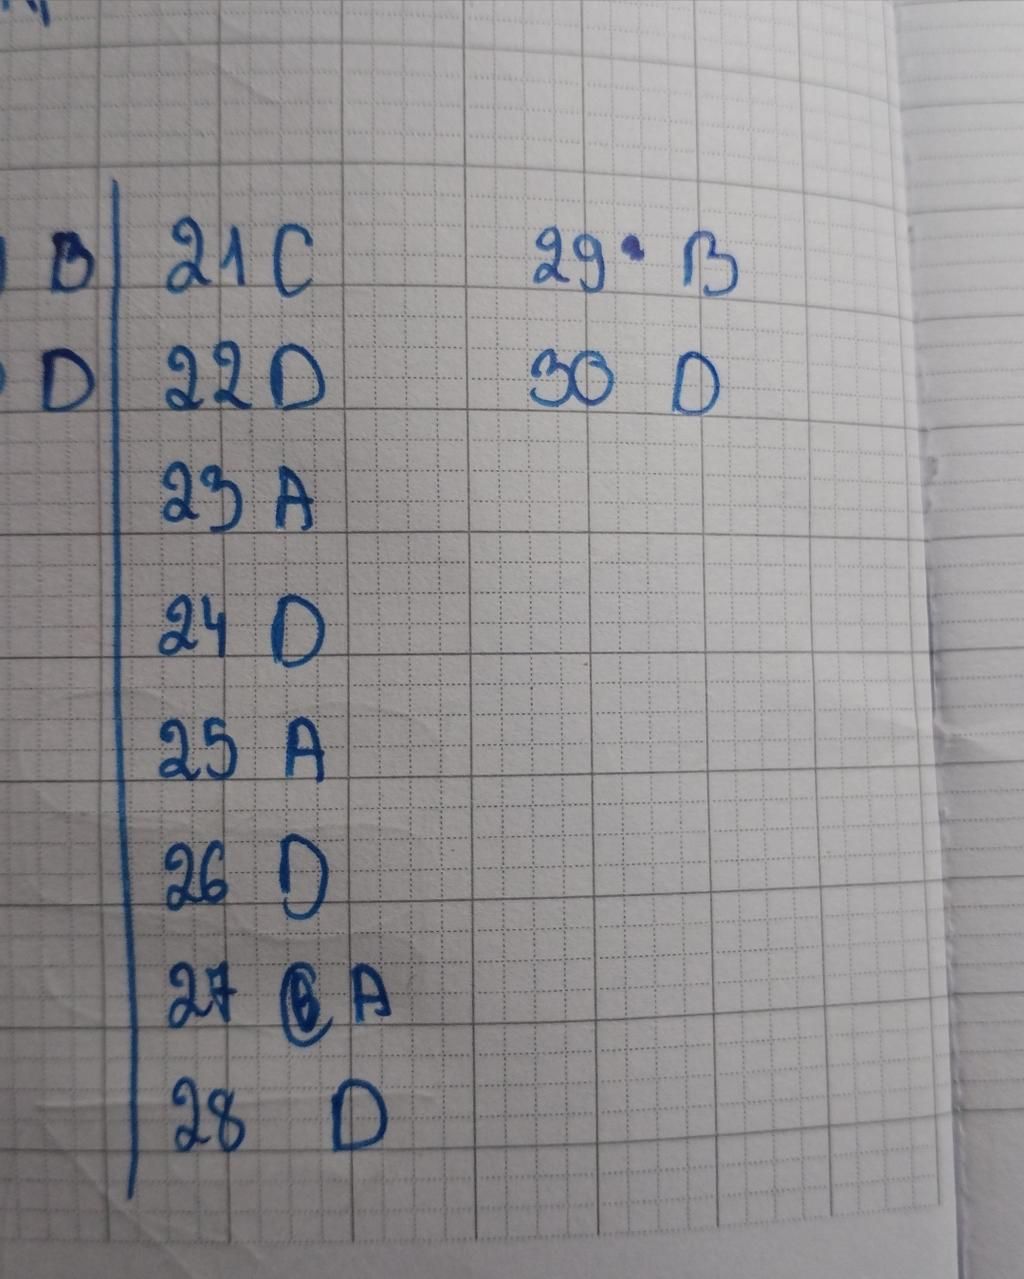 B
D
21 C
22 D
23 A
24 D
25 A
26 D
27 A
28 D
29 B
30 D